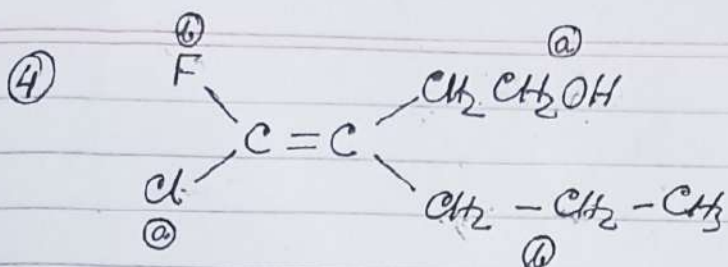 ④
ⓑ ⓐ
F CH₂CH₂OH
C = C
Cl CH₂ - CH₂ - CH₃
ⓐ ⓑ